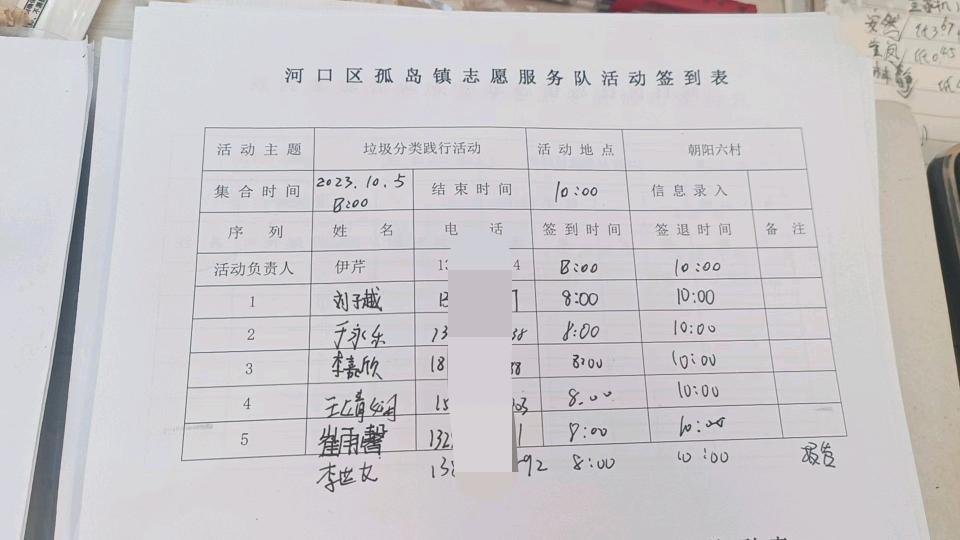 河口区孤岛镇志愿服务队活动签到表
活动主题 垃圾分类践行活动 活动地点 朝阳六村
集合时间 2023.10.5 8:00 结束时间 10:00 信息录入
序列 姓名 电话 签到时间 签退时间 备注
活动负责人 伊芹 13 4 8:00 10:00
1 刘子越 13 8:00 10:00
2 于永乐 13 38 8:00 10:00
3 李嘉欣 18 38 8:00 10:00
4 15 03 8:00 10:00
5 崔雨馨 132 1 8:00 10:00
李世友 138 92 8:00 10:00
安然